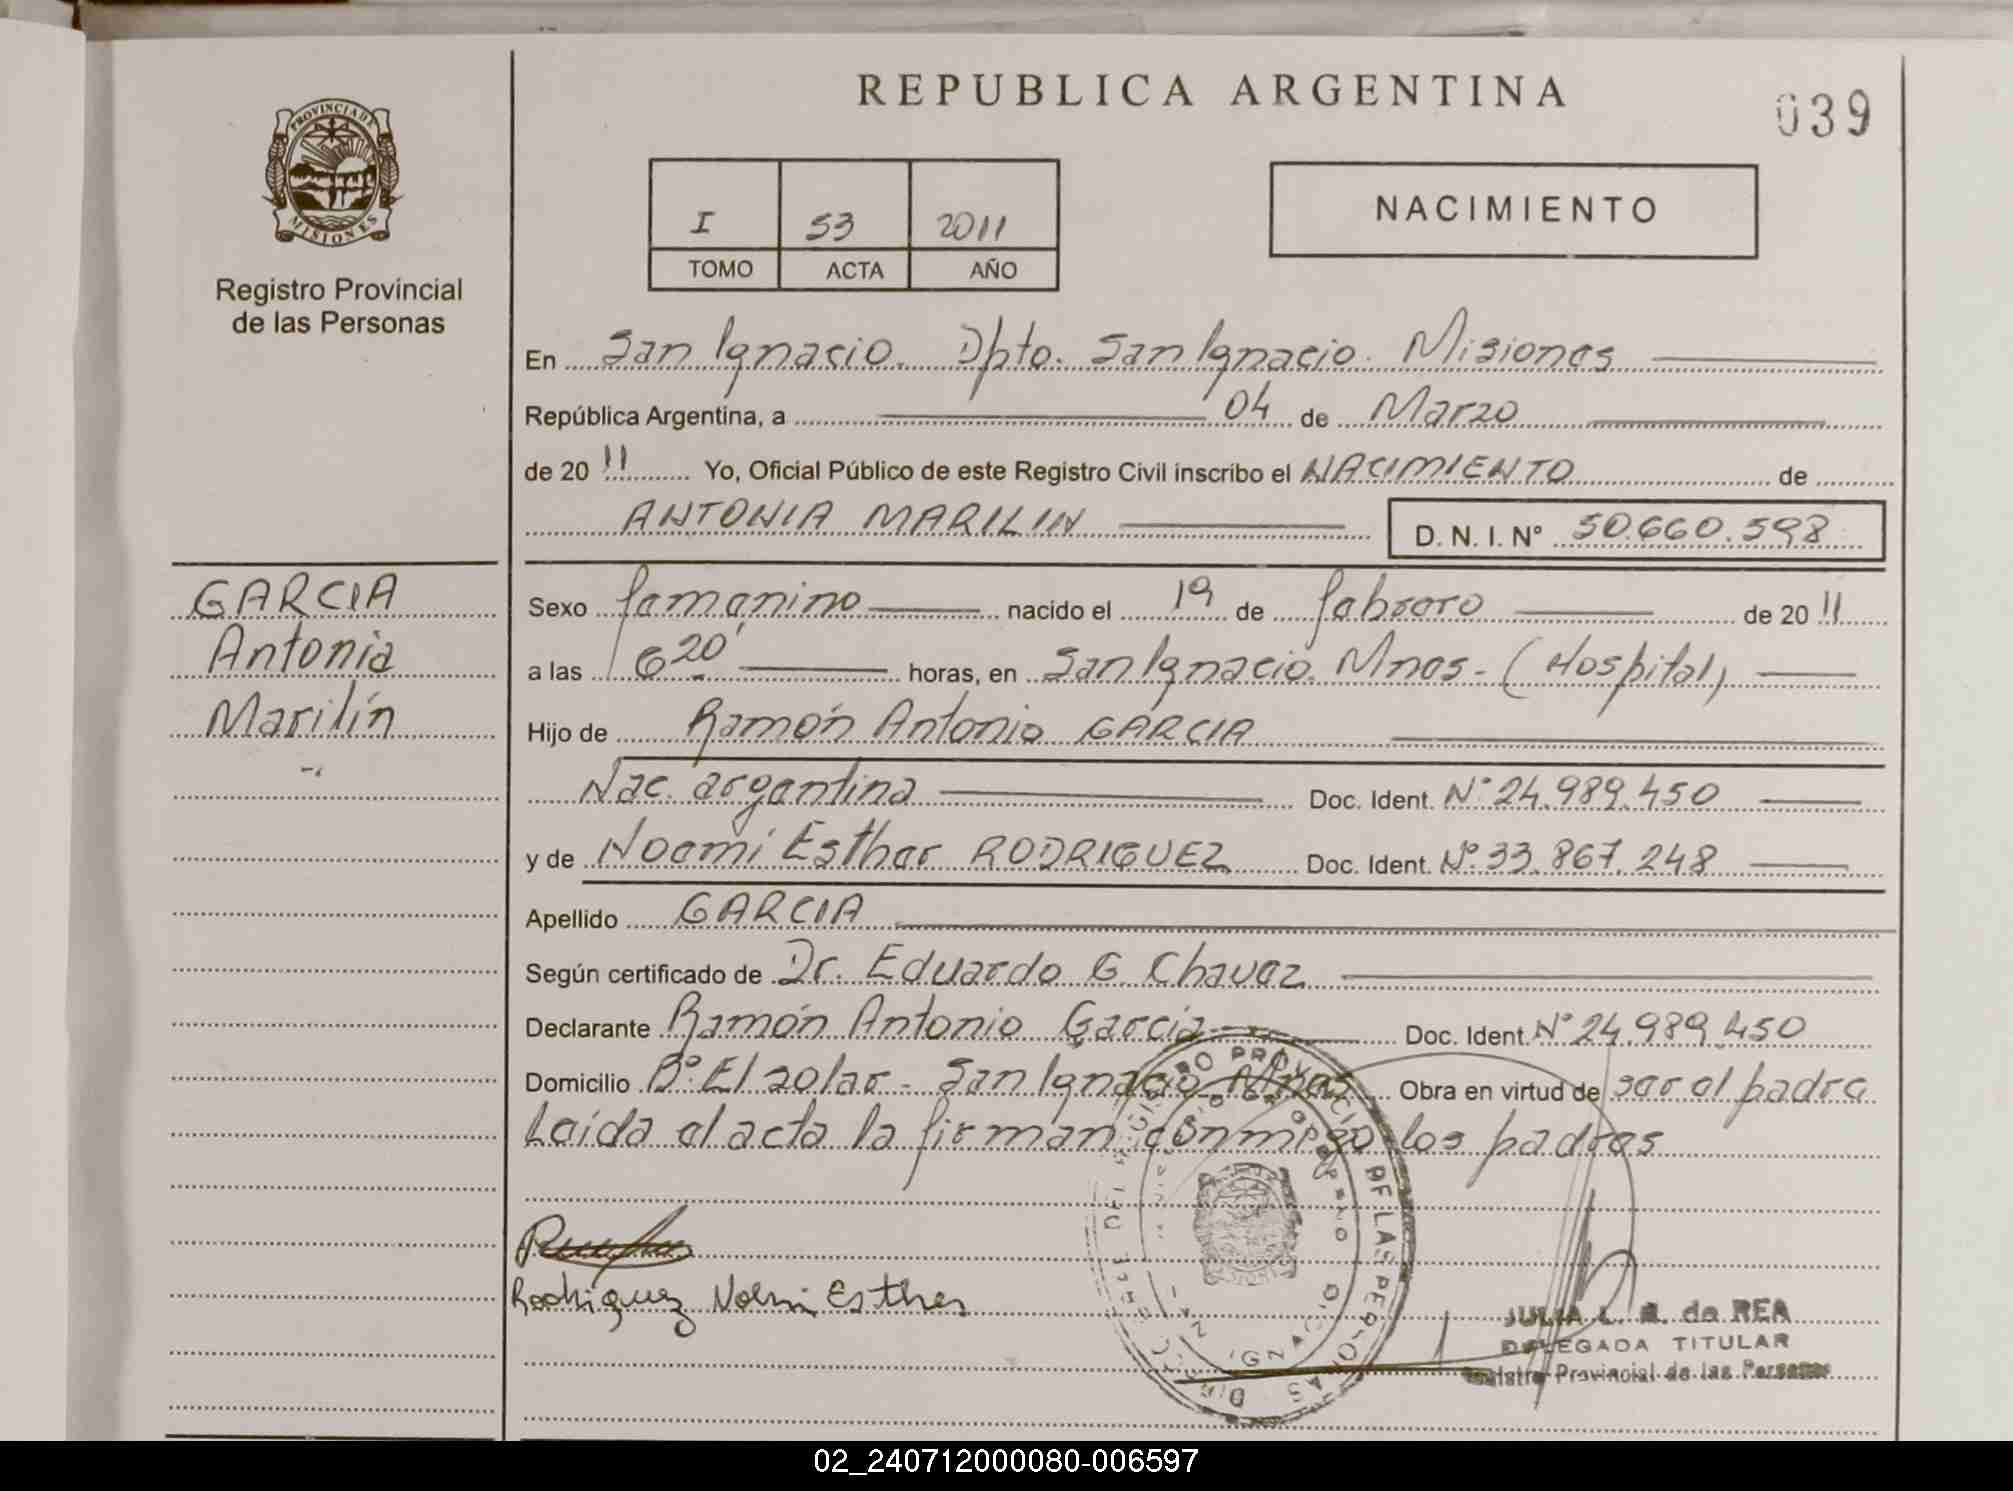 REPUBLICA ARGENTINA
039
PROVINCIA DE
MISIONES
Registro Provincial
de las Personas
I 53 2011
TOMO ACTA AÑO
NACIMIENTO
En San Ignacio. Dpto. San Ignacio. Misiones
República Argentina, a 04 de Marzo
de 20 11 Yo, Oficial Público de este Registro Civil inscribo el NACIMIENTO de
ANTONIA MARILIN D. N. I. N° 50.660.598
GARCIA
Antonia
Marilín
Sexo femenino nacido el 19 de febrero de 20 11
a las 6 20' horas, en San Ignacio. Mnes - (Hospital)
Hijo de Ramón Antonio GARCIA
Nac. argentina Doc. Ident. N° 24.989.450
y de Noemí Esther RODRIGUEZ Doc. Ident. N° 33.867.248
Apellido GARCIA
Según certificado de Dr. Eduardo G Chavez
Declarante Ramón Antonio García Doc. Ident. N° 24.989.450
Domicilio B° El solar - San Ignacio Mnes Obra en virtud de ser el padre
Leída el acta la firman conmigo los padres
Rodriguez Noemi Esther
JULIA L. R. de REA
DELEGADA TITULAR
Registro Provincial de las Personas
02_240712000080-006597